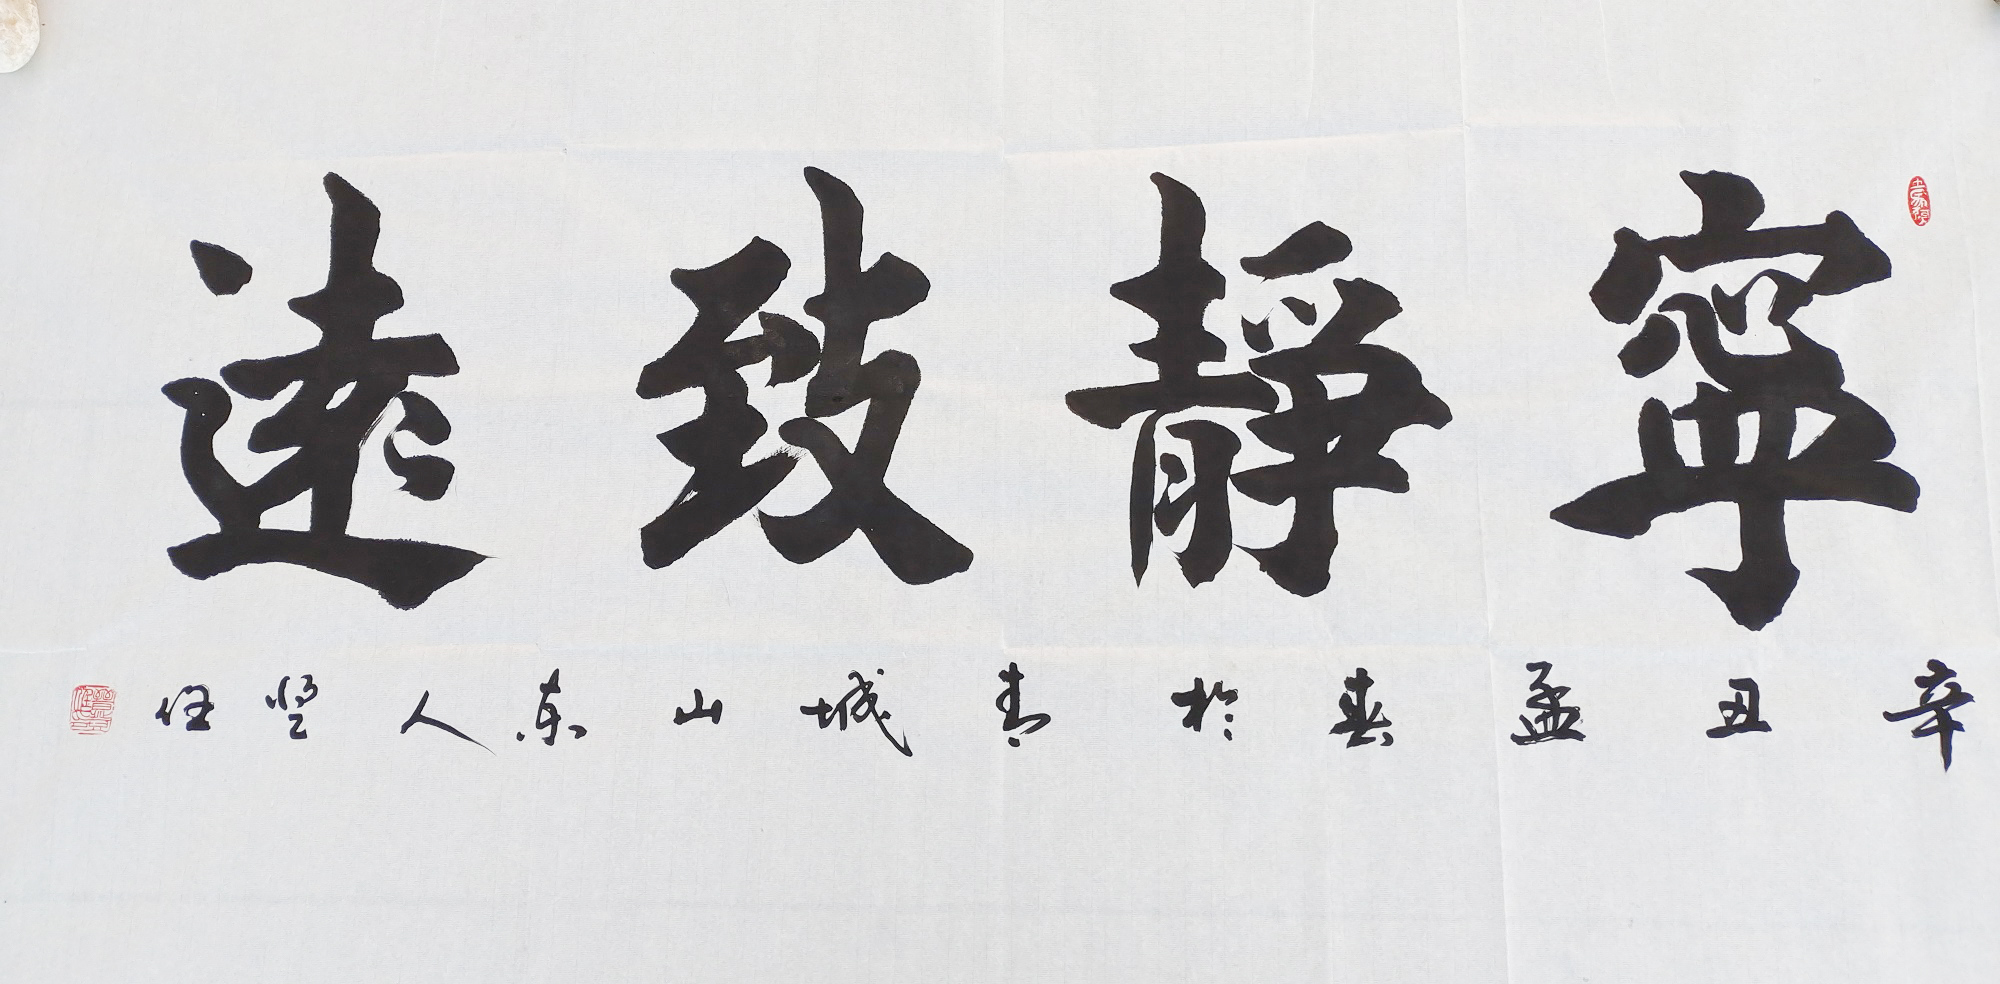 寧靜致遠
辛丑孟春於青城山东人登任